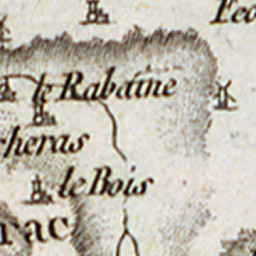 le Rabaine
cheras
le Bois
rac